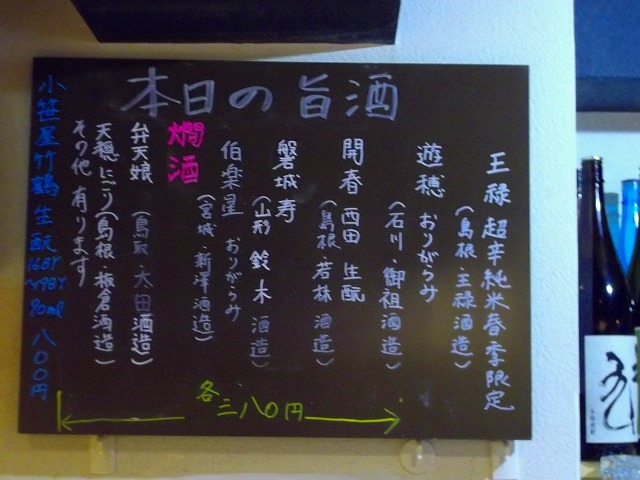 本日の旨酒
王祿 超辛純米春季限定
(島根・王禄酒造)
遊穂 おりがらみ
(石川・御祖酒造)
開春 西田 生酛
(島根・若林酒造)
磐城寿
(山形 鈴木酒造)
伯楽星 おりがらみ
(宮城・新澤酒造)
燗酒
弁天娘 (鳥取・太田酒造)
天穏にごり(島根・板倉酒造)
その他 有ります
小笹屋竹鶴 生酛
90ml 八〇〇円
各三八〇円